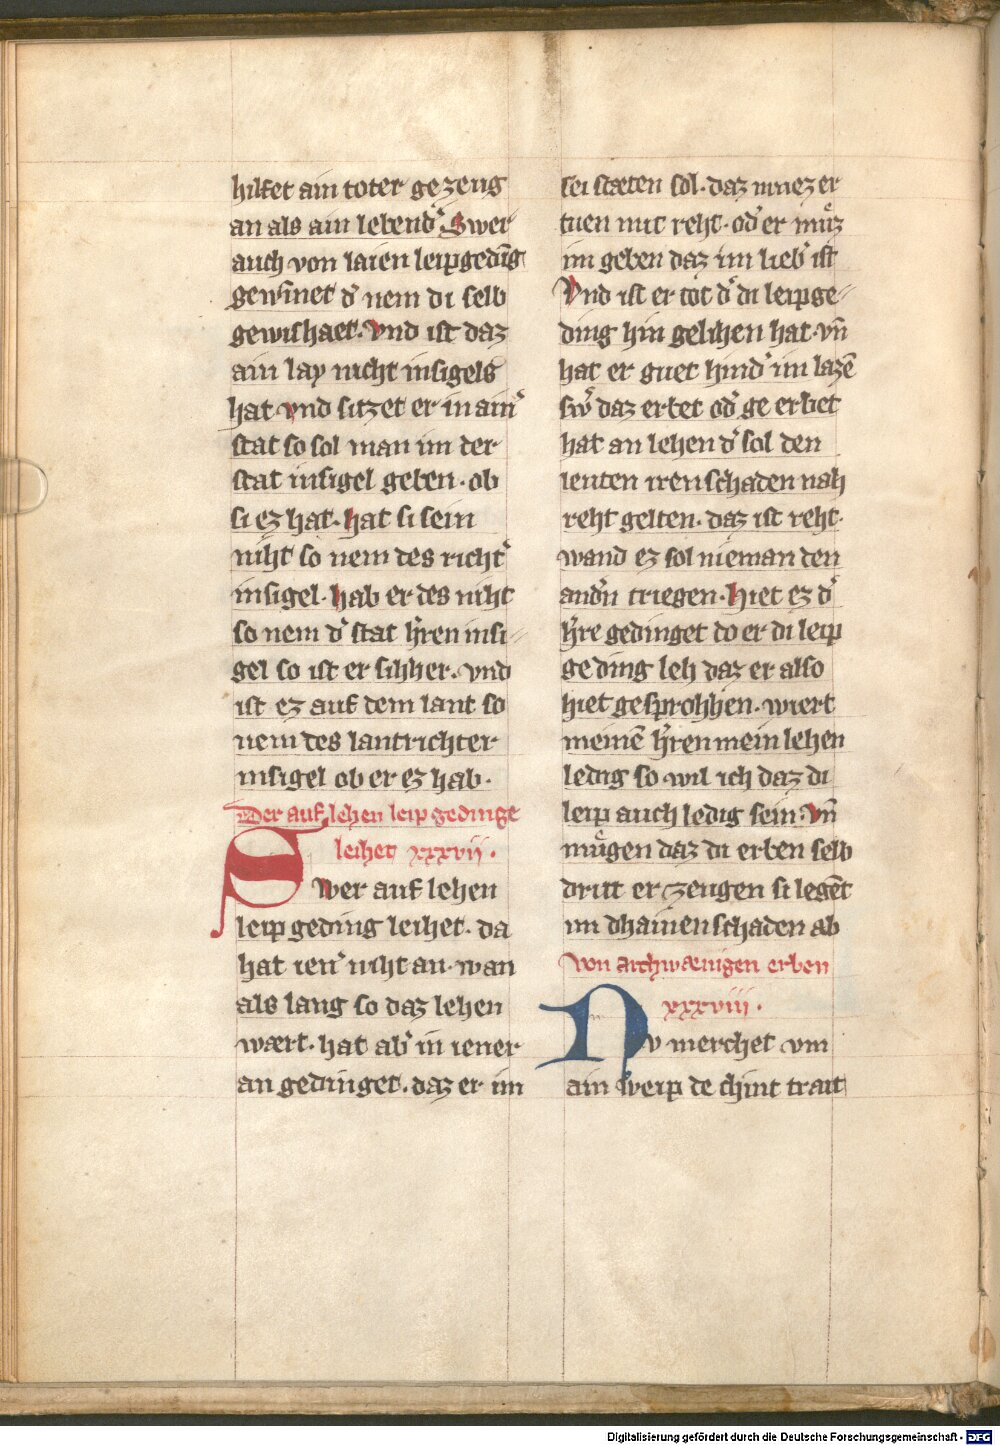 hilfet ain toter gezeug
an als ain lebend᾽. Swer
auch von laien leipgedi̅g
gewi̅net d᾽ nem di selb
gewishaet. vnd ist daz
ain lay nicht insigels
hat vnd sitzet er in ain᾽
stat so sol man im der
stat insigel geben. ob
si ez hat. hat si sein
niht so nem des richt᾽
insigel. hab er des niht
so nem d᾽ stat h᾽ren insi-
gel so ist er sihher. vnd
ist ez auf dem lant so
nem des lantrichter
insigel ob er ez hab.
Der auf lehen leip gedinge
leihet xxxvii.
Swer auf lehen
leip geding leihet. da
hat ien᾽ niht an. wan
als lang so daz lehen
wært. hat ab᾽ in iener
an gedinget. daz er im
sei stæten sol. daz muez er
tuen mit reht. od᾽ er muͤz
im geben daz im lieb᾽ ist
Vnd ist er tot d᾽ di leipge-
ding hin gelihen hat. vn̅
hat er guet hind᾽ im laze̅
sw᾽ daz erbet od᾽ ge erbet
hat an lehen d᾽ sol den
leuten iren schaden nah
reht gelten. daz ist reht.
wand ez sol nieman den
and᾽n triegen. hiet ez d᾽
h᾽re gedinget do er di leip
geding leh daz er also
hiet gesprohhen. wiert
meine̅ h᾽ren mein lehen
ledig so wil ich daz di
leip auch ledig sein. Vn̅
muͤgen daz di erben selb
dritt er zeugen si lege̅t
im dhainen schaden ab
Von archwænigen erben
xxxviii.
Nv merchet vm
ain weip de chint trait
Digitalisierung gefördert durch die Deutsche Forschungsgemeinschaft - DFG